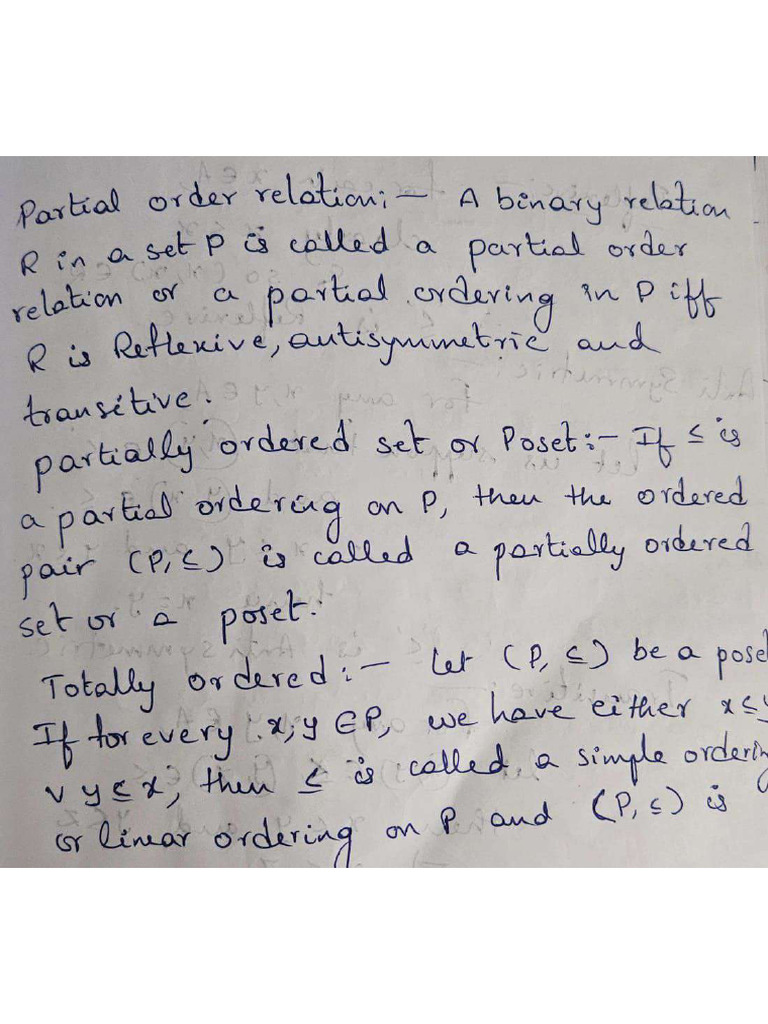 Partial order relation:- A binary relation
R in a set P is called a partial order
relation or a partial ordering in P iff
R is Reflexive, antisymmetric and
transitive.
partially ordered set or Poset:- If ≤ is
a partial ordering on P, then the ordered
pair (P, ≤) is called a partially ordered
set or a poset.
Totally ordered:- Let (P, ≤) be a pose
If for every x, y ∈ P, we have either x ≤ y
∨ y ≤ x, then ≤ is called a simple ordering
or linear ordering on P and (P, ≤) is